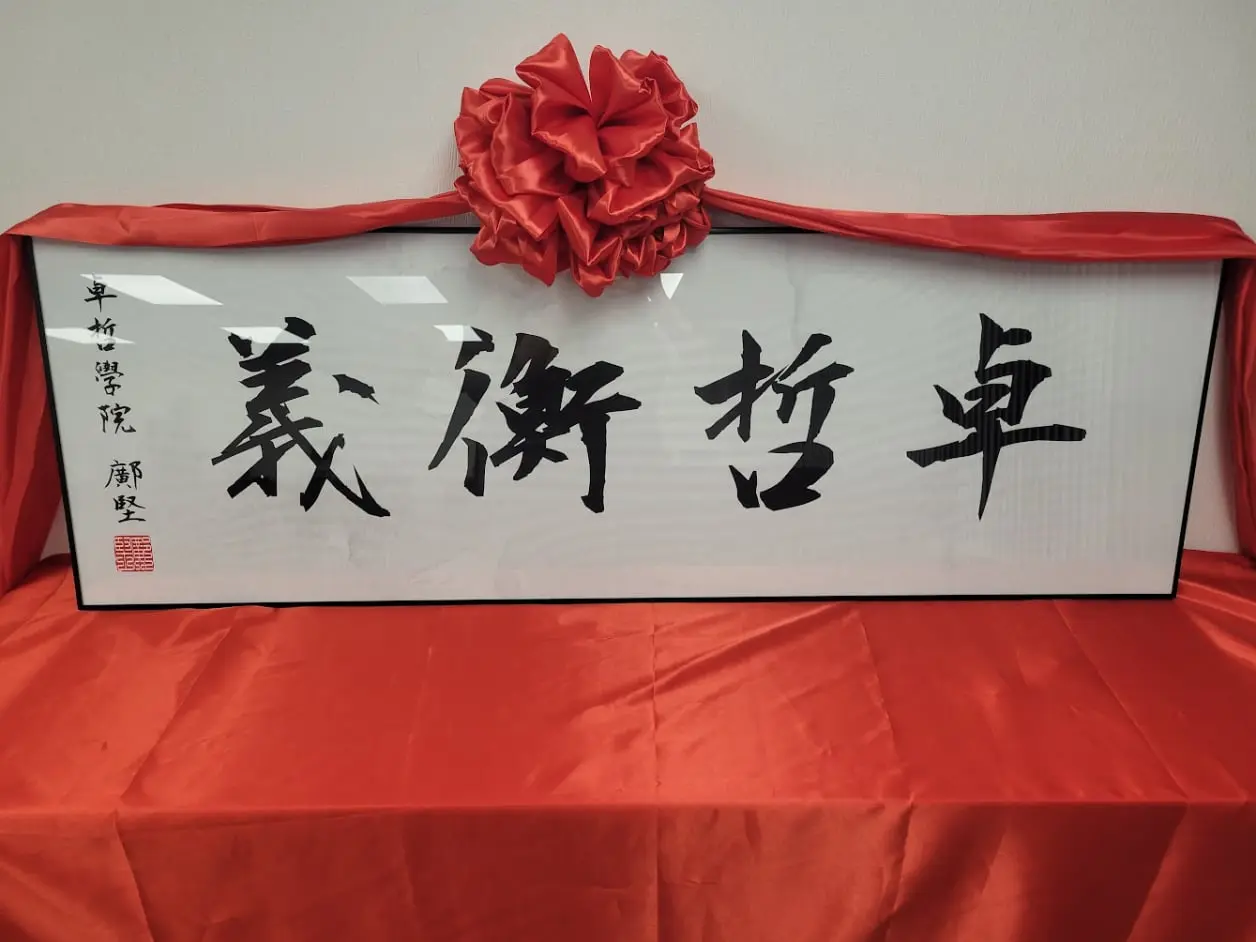 卓哲衡義
卓哲學院 鄺堅